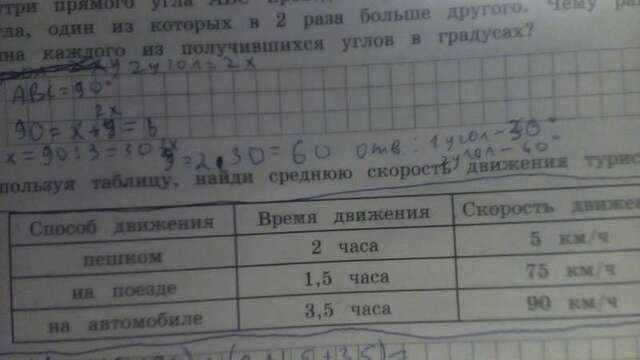 утри прямого угла ABC
гла, один из которых в 2 раза больше другого. Чему
ина каждого из получившихся углов в градусах?
2 угол = 2x
ABC = 90°
2x
90 = x + y =
x = 90 : 3 = 30 y = 2 · 30 = 60 отв: 1 угол - 30°
2 угол - 60°
пользуя таблицу, найди среднюю скорость движения турис
Способ движения Время движения Скорость движе
пешком 2 часа 5 км/ч
на поезде 1,5 часа 75 км/ч
на автомобиле 3,5 часа 90 км/ч